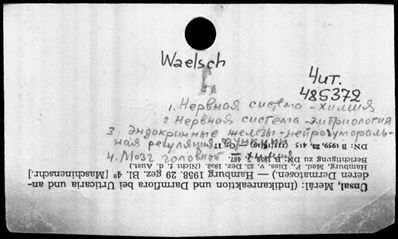 Waelsch
Чит.
485372
1. Нервная система - химия
2 Нервная система - эмбриология
3 Эндокринные железы - нейрогумораль-
ная регуляция
4. Мозг головной - химия
Unsal, Meral: (Indikanreaktion und Darmflora bei Urticaria und an-
deren Dermatosen.) — Hamburg 1958. 29 gez. Bl. 4° [Maschinenschr.]
Hamburg, Med. F., Diss. v. 23. Dez. 1958. (Nicht f. d. Aust.)
Berichtigung zu DN. B 1959, 7, 467.